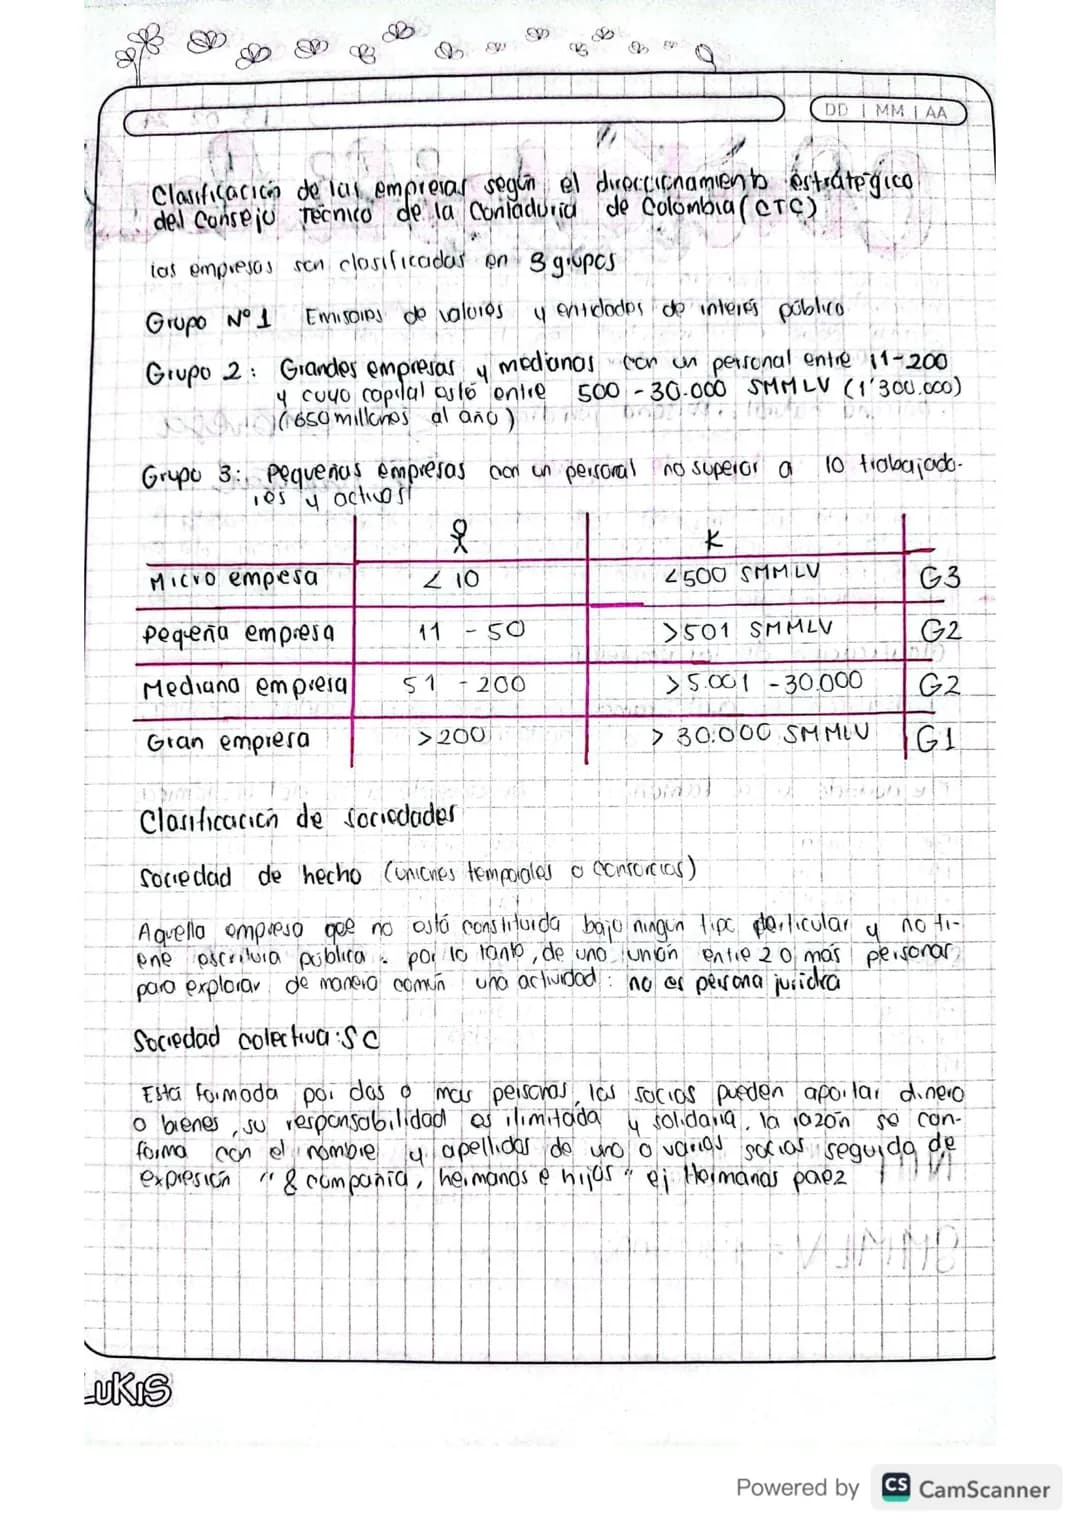 DD | MM | AA
Clasificación de las empresas según el direccionamiento estratégico
del Consejo Técnico de la Contaduria de Colombia (CTC)
las empresas son clasificadas en 3 grupos
Grupo Nº 1 Emisores de valores y entidades de interés público
Grupo 2: Grandes empresas y medianas con un personal entre 11-200
y cuyo capital esté entre 500 - 30.000 SMMLV (1'300.000)
(650 millones al año)
Grupo 3: Pequeñas empresas con un personal no superior a 10 trabajado-
res y activos
K
Micro empesa < 10 <500 SMMLV G3
Pequeña empresa 11 - 50 >501 SMMLV G2
Mediana empresa 51 - 200 >5.001 - 30.000 G2
Gran empresa >200 > 30.000 SMMLV G1
Clasificación de sociedades
Sociedad de hecho (uniones temporales o consorcios)
Aquella empresa que no está constituida bajo ningun tipo particular y no ti-
ene escritura pública. por lo tanto, de una unión entre 2 o mas personas
para explorar de manera común una actividad: no es persona juridica
Sociedad colectiva: SC
Está formada por dos o mas personas, los socios pueden aportar dinero
o bienes, su responsabilidad es ilimitada y solidaria. la razón se con-
forma con el nombre y apellidos de uno o varios socios seguida de
expresión "& compañia, hermanos e hijos" ej Hermanas paez
LUKIS
Powered by CS CamScanner